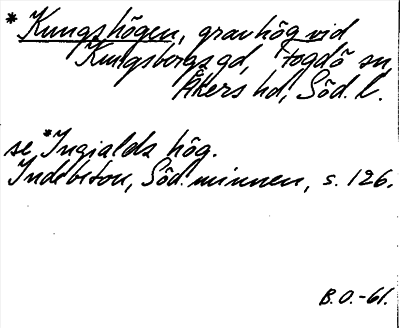 *Kungshögen, gravhög vid
Kungsbergs gd, Fogdö sn,
Åkers hd, Söd. l.
se *Ingialds hög.
Indebetou, Söd. minnen, s. 126.
B.O.-61.